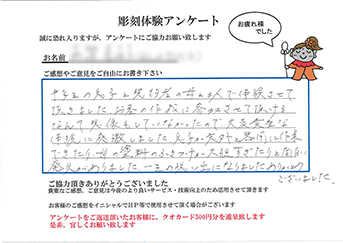 彫刻体験アンケート
お疲れ様
でした
誠に恐れ入りますが、アンケートにご協力お願い致します
お名前
ご感想やご意見をご自由にお書き下さい
中学生の息子と
の母と3人で体験させて
頂きました お墓の作成に参加させて頂ける
なんて想像もしていなかったので、大変貴重な
体験に感激しました 息子が意外と器用に作業
できたり、母の
が大胆すぎたりと面白い
発見がありました 一生の思い出になりました ありがとう
ございました。
ご協力頂きありがとうございました
貴重なご感想、ご意見は今後のより良いサービス・技術向上のため活用させて頂きます
お客様のご感想をイニシャルでHP等で使用させて頂く場合がございます
アンケートをご返送頂いたお客様に、クオカード500円分を進呈致します
是非、宜しくお願い致します